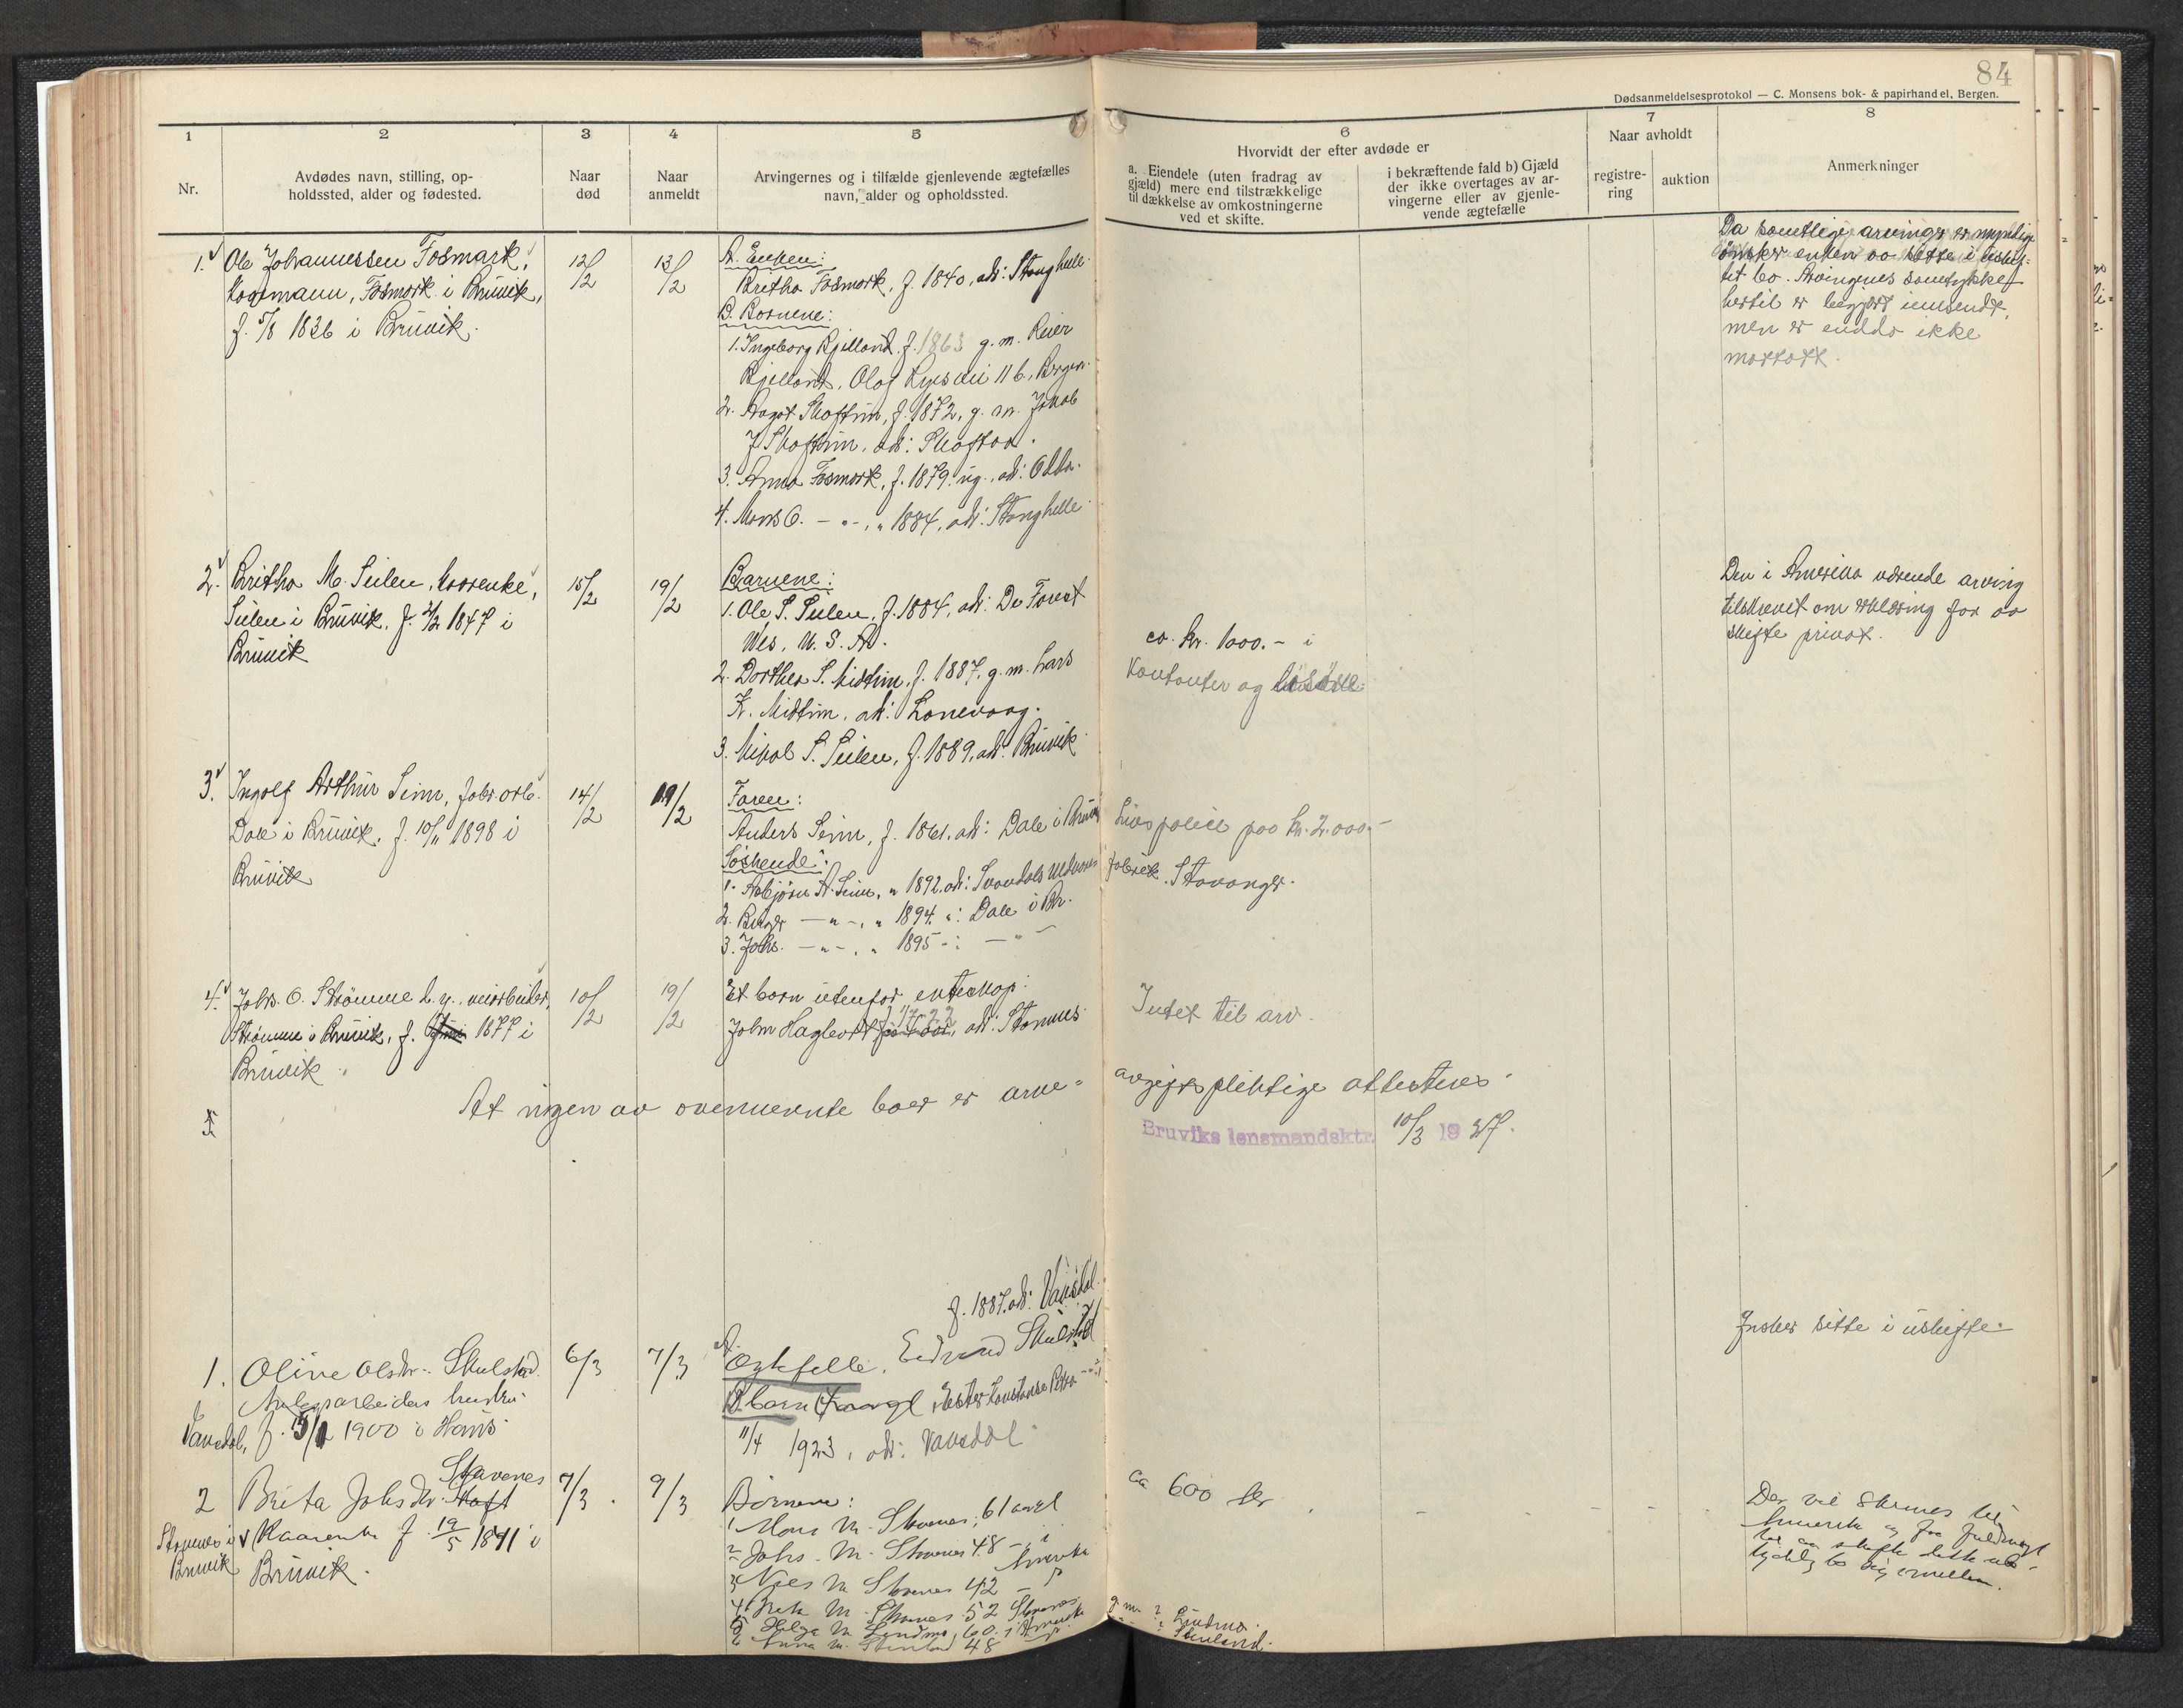 84
Dødsanmeldelsesprotokol — C. Monsens bok- & papirhandel, Bergen.
1
Nr.
2
Avdødes navn, stilling, op-
holdssted, alder og fødested.
3
Naar
død
4
Naar
anmeldt
5
Arvingernes og i tilfælde gjenlevende ægtefælles
navn, alder og opholdssted.
6
Hvorvidt der efter avdøde er
a. Eiendele (uten fradrag av
gjæld) mere end tilstrækkelige
til dækkelse av omkostningerne
ved et skifte.
i bekræftende fald b) Gjæld
der ikke overtages av ar-
vingerne eller av gjenle-
vende ægtefælle
7
Naar avholdt
registre-
ring
auktion
8
Anmerkninger
1. Ole Johannessen Fosmark,
Kaarmann, Fosmark i Bruvik,
f. 5/8 1836 i Bruvik.
12/2
13/2
A. Enken:
Bretha Fosmark, f. 1840, adr: Stanghelle
B. Børnene:
1. Ingeborg Kjelland, f. 1863 g. m. Reier
Kjelland, Olaf Ryes vei 11 b, Bergen.
2. Aagot Skoftun, f. 1872, g. m. Jakob
J. Skoftun, adr: Skaftaa.
3. Anna Fosmark, f. 1879. ug., adr: Odda.
4. Mons O. — " —, " 1884, adr: Stanghelle
Da samtlige arvinger er myndige
ønsker enken aa sitte i uskif-
tet bo. Arvingenes samtykke
hertil er begjært innsendt,
men er enddo ikke
mottatt.
2. Britha M. Seilen, kaarenke,
Seilen i Bruvik, f. 2/2 1847 i
Bruvik
15/2
19/2
Barnene:
1. Ole S. Seilen, f. 1884, adr: De Forest
Wis, U. S. A.
2. Dorthea S. Midtun, f. 1887, g. m. Lars
K. Midtun, adr: Lonevaag.
3. Mikal S. Seilen, f. 1889, adr: Bruvik
ca. kr. 1000.- i
Kontanter og løsøre
Den i Amerika værende arving
tilskrevet om erklæring for aa
skifte privat.
3. Ingolf Arthur Seim, fabr.arb.
Dale i Bruvik, f. 10/11 1898 i
Bruvik
14/2
19/2
Faren:
Anders Seim, f. 1861, adr: Dale i Bruvik
Søskende:
1. Asbjørn A. Seim, " 1892, adr:
2. Birger — " —, " 1894. ": Dale i Br.
3. Johs. — " —, " 1895 -: — " —
Livspolice paa kr. 2.000.-
fabrik. Stavanger.
4. Johs. O. Strømme d. y., veiarbeider,
Strømme i Bruvik, f. 1877 i
Bruvik.
10/2
19/2
Et barn utenfor ekteskap:
John f. 1922, adr: Stamnes
Intet til arv.
At ingen av ovennevnte boer er arve-
avgiftspliktige attesteres
Bruviks lensmandsktr. 10/3 1927.
1. Oline Olsdtr. Skulstad
Anlegsarbeiders hustru
Vaksdal, f. 1900 i Haus
6/3
7/3
f. 1887. adr: Vaksdal
A. Ægtefelle, Edvard Skulstad
B. barn
11/4 1923, adr: Vaksdal
Ønsker sitte i uskifte.
2 Brita Johsdtr. Stavenes
Stamnes i
Bruvik
Kaarenke f. 19/5 1841 i
Bruvik.
7/3
9/3
Børnene:
1 Mons M. 61 aar
2 Johs. M. 48 — " i
Amerika
3 Nils M. 42 —
4 M. 52
5 Helga M. Lindmo, 60. i Amerika
6 Anna M. 48
ca 600 kr
g. m. ? Lindmo.
Der vil skrives til
Amerika og faa fuldmagt
til aa skifte dette